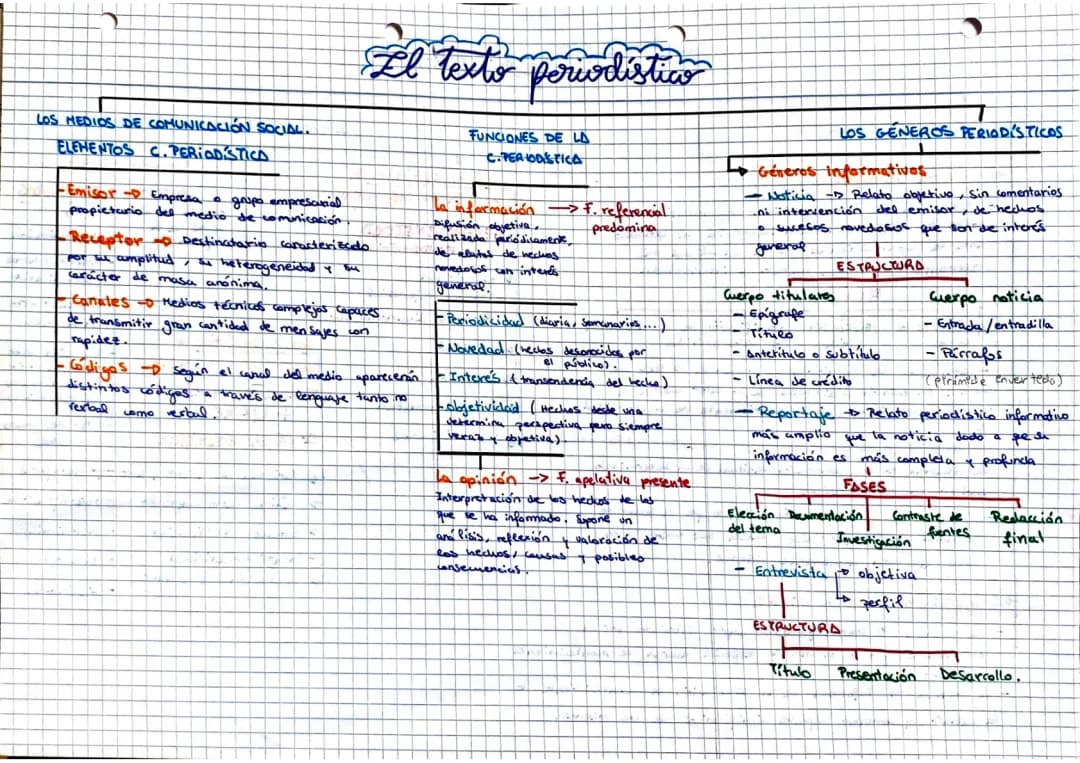 El texto periodístico
LOS MEDIOS DE COMUNICACIÓN SOCIAL.
ELEMENTOS C. PERIODÍSTICA
- Emisor → Empresa o grupo empresarial
propietario del medio de comunicación.
- Receptor → Destinatario caracterizado
por su amplitud, su heterogeneidad y su
carácter de masa anónima.
- Canales → Medios técnicos complejos capaces
de transmitir gran cantidad de mensajes con
rapidez.
- Códigos → según el canal del medio aparecerán
distintos códigos a través de lenguaje tanto no
verbal como verbal.
FUNCIONES DE LA
C. PERIODÍSTICA
La información → F. referencial
predomina
Difusión objetiva,
realizada periódicamente,
de relatos de hechos
novedosos con interés
general.
- Periodicidad (diaria, semanarios...)
- Novedad (hechos desconocidos por
el público).
- Interés (transcendencia del hecho)
- objetividad (Hechos desde una
determina perspectiva pero siempre
veraz y objetiva)
La opinión → F. apelativa presente
Interpretación de los hechos de los
que se ha informado. Supone un
análisis, reflexión y valoración de
los hechos, causas y posibles
consecuencias.
LOS GÉNEROS PERIODÍSTICOS
→ Géneros informativos
- Noticia → Relato objetivo, sin comentarios
ni intervención del emisor, de hechos
o sucesos novedosos que son de interés
general
ESTRUCTURA
Cuerpo titulares
- Epígrafe
- Título
- Antetítulo o subtítulo
- Línea de crédito
Cuerpo noticia
- Entrada/entradilla
- Párrafos
(pirámide envertedo)
- Reportaje → Relato periodístico informativo
más amplio que la noticia dado a que su
información es más completa y profunda
FASES
Elección del tema
Documentación
Investigación
Contraste de fuentes
Redacción final
- Entrevista → objetiva
→ perfil
ESTRUCTURA
Título Presentación Desarrollo.